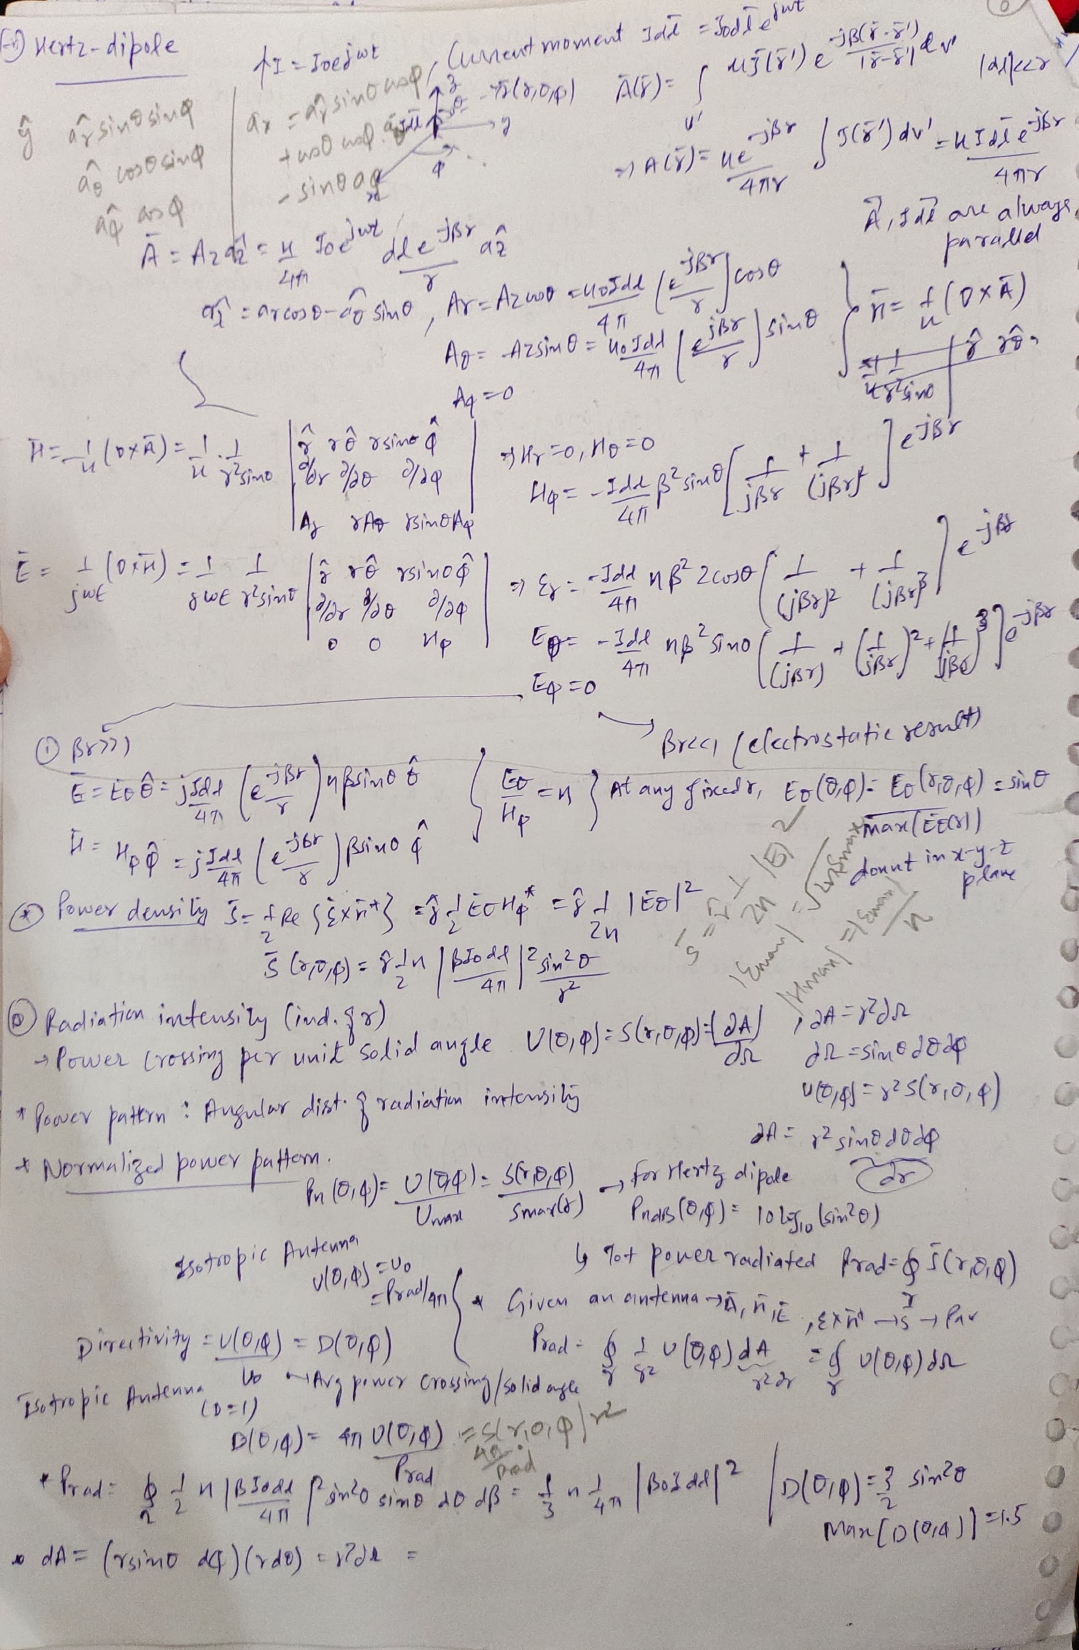 Hertz-dipole
I = I₀e^jωt, Current moment Idl̄ = I₀dl̄ e^jωt
ŷ
âr sinθ sinφ
âθ cosθ sinφ
âφ cosφ
âx = âr sinθ cosφ
+ cosθ cosφ âθ
- sinθ aφ
r̄(r,θ,φ)
Ā(r̄) = ∫v' μJ̄(r̄') e^-jβ(r̄-r̄') / |r̄-r̄'| dv' |dl|<<r
⇒ A(r̄) = μe^-jβr / 4πr ∫ J(r̄') dv' = μIdl̄ e^-jβr / 4πr
Ā, Idl̄ are always parallel
Ā = Az âz = μ/4π I₀e^jωt dl e^-jβr / r âz
âz = âr cosθ - âθ sinθ, Ar = Az cosθ = μ₀Idl/4π (e^-jβr / r) cosθ
Aθ = -Az sinθ = μ₀Idl/4π (e^-jβr / r) sinθ
Aφ = 0
H̄ = 1/μ (∇×Ā)
H̄ = 1/μ (∇×Ā) = 1/μ · 1/r²sinθ | r̂ rθ̂ rsinθ φ̂ |
| ∂/∂r ∂/∂θ ∂/∂φ |
| Ar rAθ rsinθAφ |
⇒ Hr = 0, Hθ = 0
Hφ = -Idl/4π β² sinθ [ 1/jβr + 1/(jβr)² ] e^-jβr
Ē = 1/jωε (∇×H̄) = 1/jωε 1/r²sinθ | r̂ rθ̂ rsinθ φ̂ |
| ∂/∂r ∂/∂θ ∂/∂φ |
| 0 0 Hφ |
⇒ Er = -Idl/4π ηβ² 2cosθ [ 1/(jβr)² + 1/(jβr)³ ] e^-jβr
Eθ = -Idl/4π ηβ² sinθ [ 1/(jβr) + (1/jβr)² + (1/jβr)³ ] e^-jβr
Eφ = 0
① βr>>1
βr<<1 (electrostatic result)
Ē = Eθ θ̂ = j Idl/4π (e^-jβr / r) ηβ sinθ θ̂
H̄ = Hφ φ̂ = j Idl/4π (e^-jβr / r) β sinθ φ̂
Eθ/Hφ = η
At any fixed r, Eθ(θ,φ) = Eθ(r,θ,φ) / max(Eθ(r)) = sinθ
donut in x-y-z plane
Power density S̄ = 1/2 Re {Ē×H̄*} = r̂ 1/2 Eθ Hφ* = r̂ 1/2η |Eθ|²
S̄ (r,θ,φ) = r̂ 1/2 η |βI₀dl/4π|² sin²θ/r²
S̄ = r̂ 1/2η |E|²
|Emax| = √2ηSmax
|Hmax| = |Emax|/η
Radiation intensity (ind. of r)
→ Power crossing per unit solid angle U(θ,φ) = S(r,θ,φ) (dA/dΩ), dA = r²dΩ
dΩ = sinθ dθ dφ
U(θ,φ) = r² S(r,θ,φ)
* Power pattern : Angular dist. of radiation intensity
dA = r² sinθ dθ dφ
dΩ
* Normalized power pattern.
Pn (θ,φ) = U(θ,φ)/Umax = S(r,θ,φ)/Smax(r) → for Hertz dipole
PndB (θ,φ) = 10 log₁₀ (sin²θ)
Isotropic Antenna
U(θ,φ) = U₀
= Prad/4π
↳ Tot power radiated Prad = ∮ S̄(r,θ,φ)
* Given an antenna → Ā, H̄, Ē, E×H* → S → Pav
Directivity = U(θ,φ)/U₀ = D(θ,φ)
Prad = ∮ 1/r² U(θ,φ) dA = ∮ U(θ,φ) dΩ
→ Avg power crossing/solid angle
Isotropic Antenna
(D=1)
D(θ,φ) = 4π U(θ,φ)/Prad = S(r,θ,φ) r²
* Prad = ∮ 1/2 η |βI₀dl/4π|² sin²θ sinθ dθ dβ = 1/3 η 1/4π |βI₀dl|²
D(θ,φ) = 3/2 sin²θ
Max [D(θ,φ)] = 1.5
* dA = (rsinθ dφ)(rdθ) = r²dΩ =